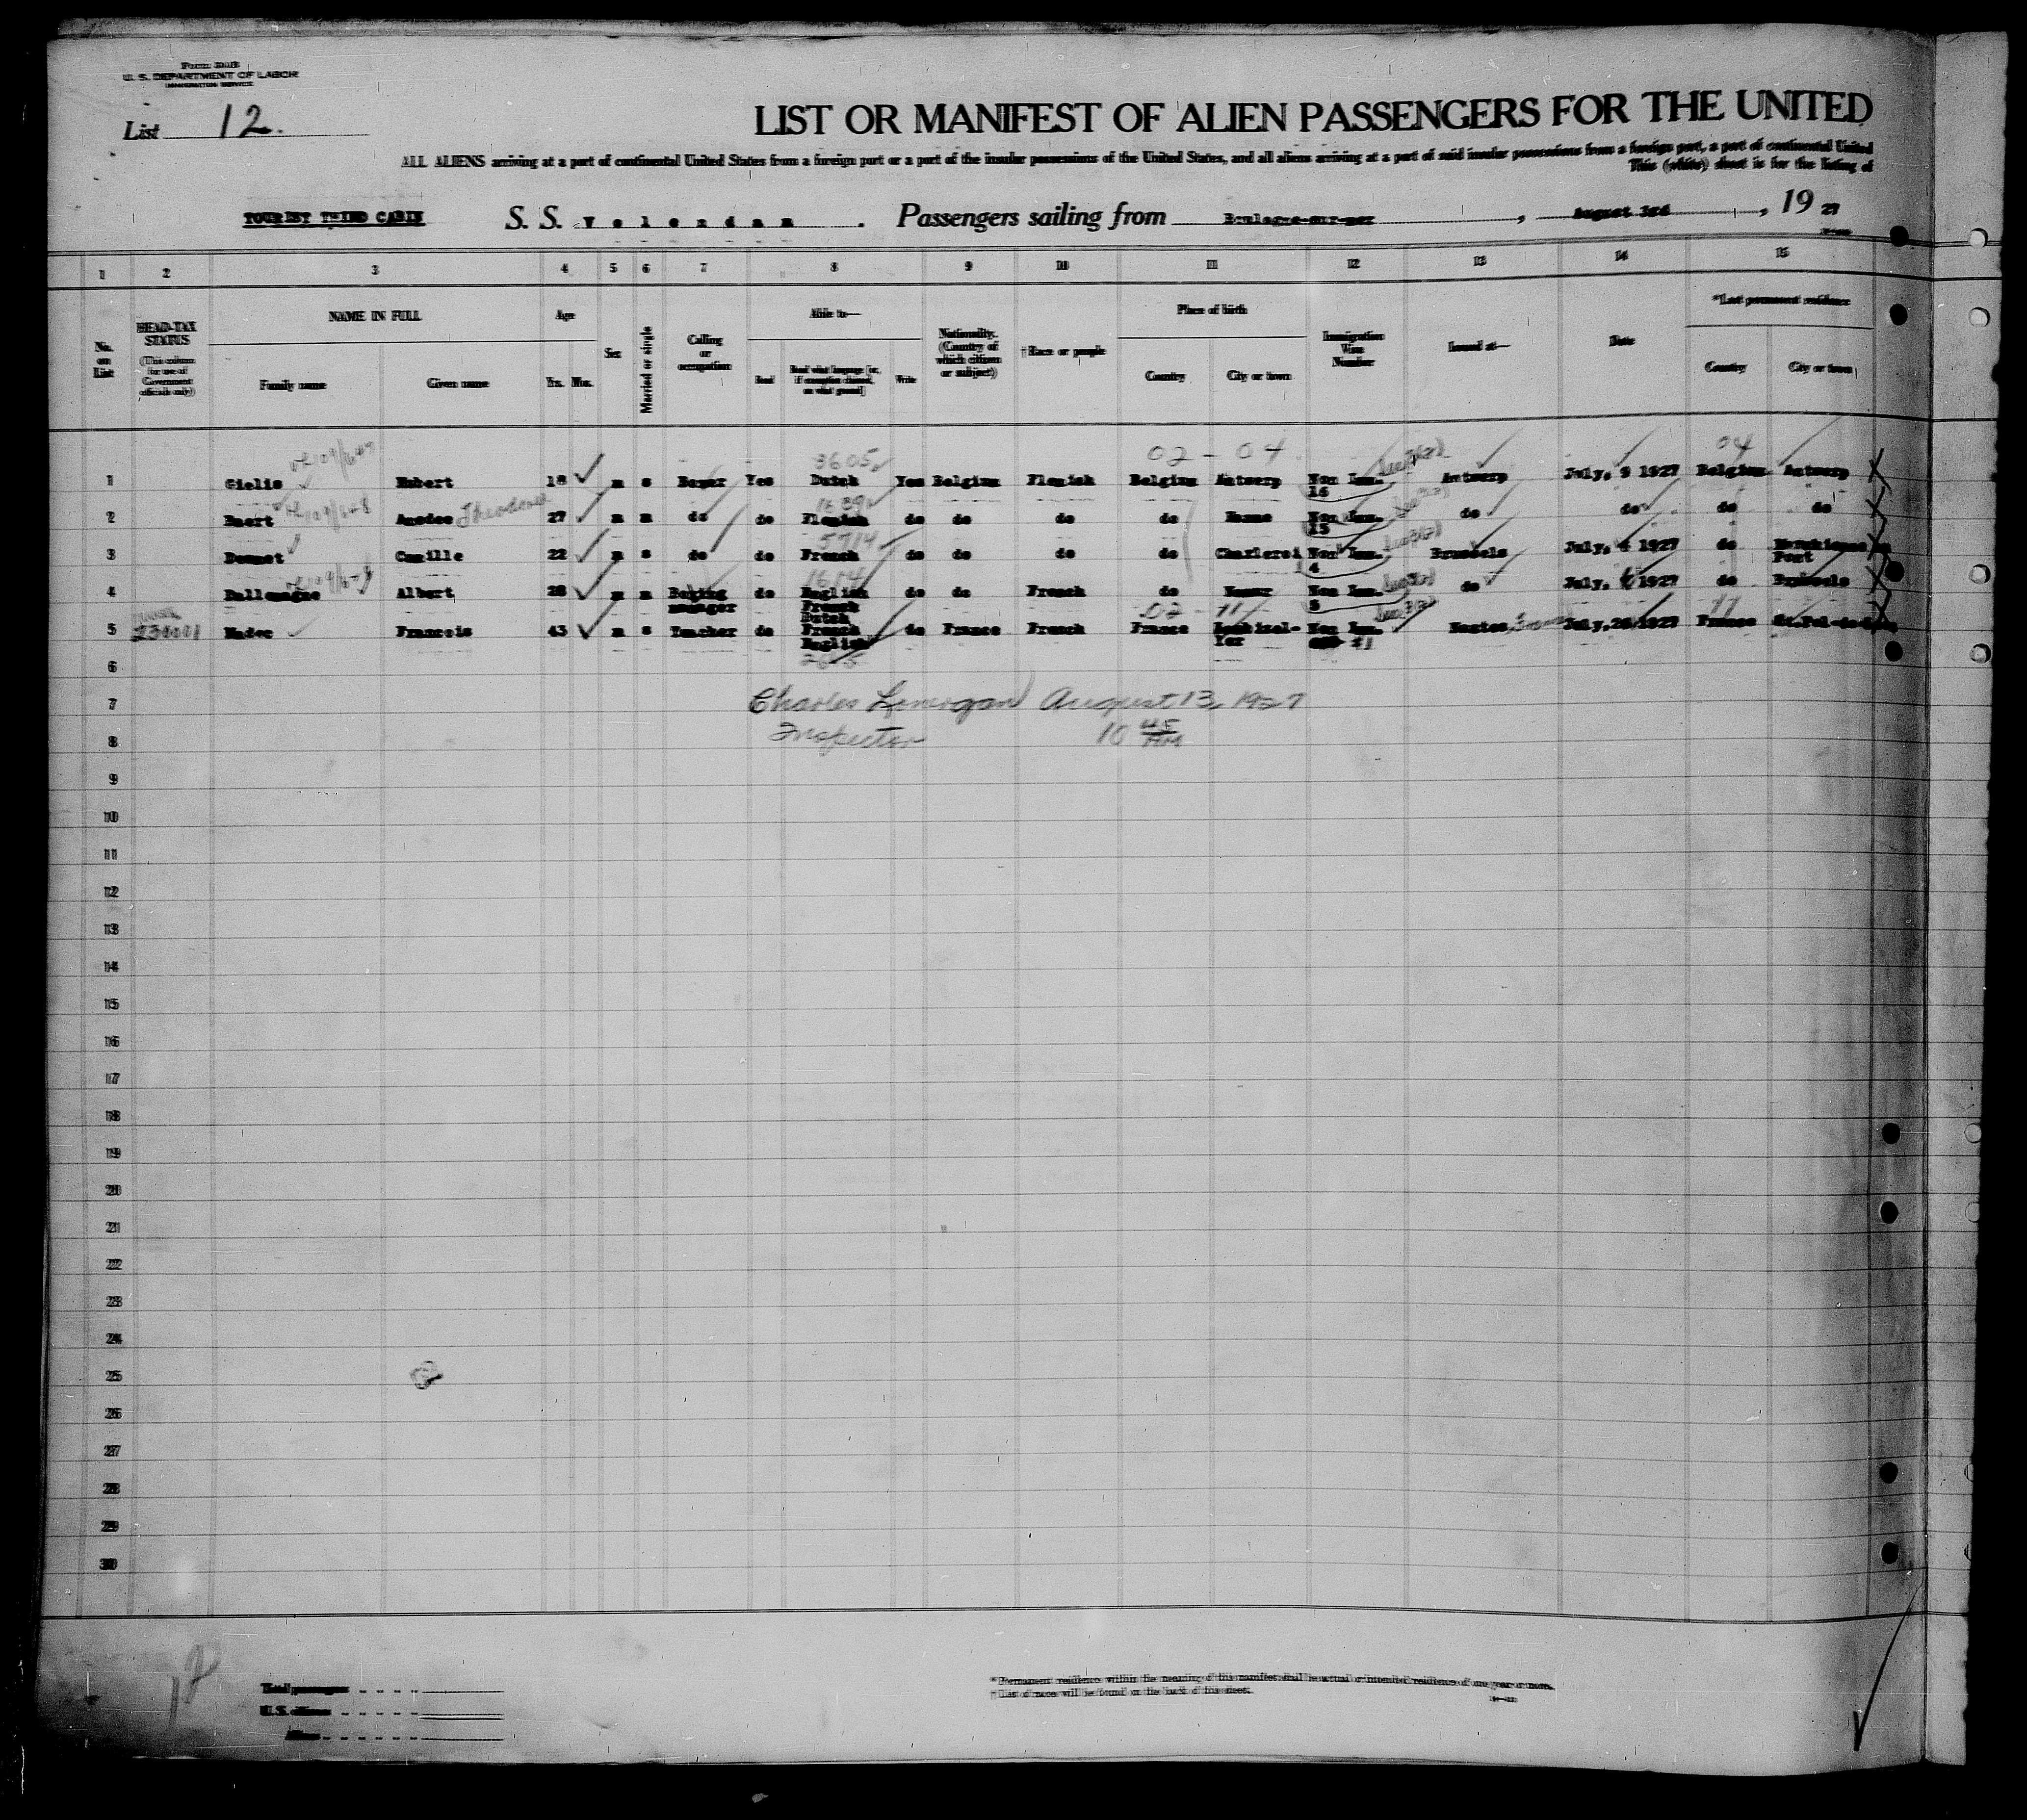 U. S. DEPARTMENT OF LABOR
IMMIGRATION SERVICE
List 12.
LIST OR MANIFEST OF ALIEN PASSENGERS FOR THE UNITED
ALL ALIENS arriving at a port of continental United States from a foreign port or a port of the insular possessions of the United States, and all aliens arriving at a port of said insular possessions from a foreign port, a port of continental United
This (white) sheet is for the listing of
TOURIST THIRD CABIN S. S. Volendam. Passengers sailing from Boulogne-sur-mer, August 3rd, 19 27
1 2 3 4 5 6 7 8 9 10 11 12 13 14 15
No. on List
HEAD-TAX STATUS
(This column for use of Government officials only)
NAME IN FULL
Family name Given name
Age
Yrs. Mos.
Sex
Married or single
Calling or occupation
Able to—
Read Read what language [or, if exemption claimed, on what ground] Write
Nationality. (Country of which citizen or subject)
†Race or people
Place of birth
Country City or town
Immigration Visa Number
Issued at—
Date
*Last permanent residence
Country City or town
02 - 04 04
1 Gielis Hubert 18 m s Boxer Yes 3605 Dutch Yes Belgium Flemish Belgium Antwerp Non Imm. 16 Antwerp July, 9 1927 Belgium Antwerp
2 Amedee Theodore 27 m m do do Flemish do do do do Non Imm. 15 do do do do
3 Camille 22 m s do do 5714 French do do do do Charleroi Non Imm. 4 Brussels July, 1927 do Pont
4 Dallemagne Albert 28 m m Boxing manager do 1614 English French do do French do Namur Non Imm. 5 do July, 1927 do Brussels
5 Madec Francois 43 m s Teacher do Dutch French English do France French France Non Imm. Nantes July, 1927 France
6
7 Charles August 13, 1927
8 Inspector 10 45 AM
9
10
11
12
13
14
15
16
17
18
19
20
21
22
23
24
25
26
27
28
29
30
Total passengers
U.S. citizens
Aliens
*Permanent residence within the meaning of this manifest shall be actual or intended residence of one year or more.
†List of races will be found on the back of this sheet.